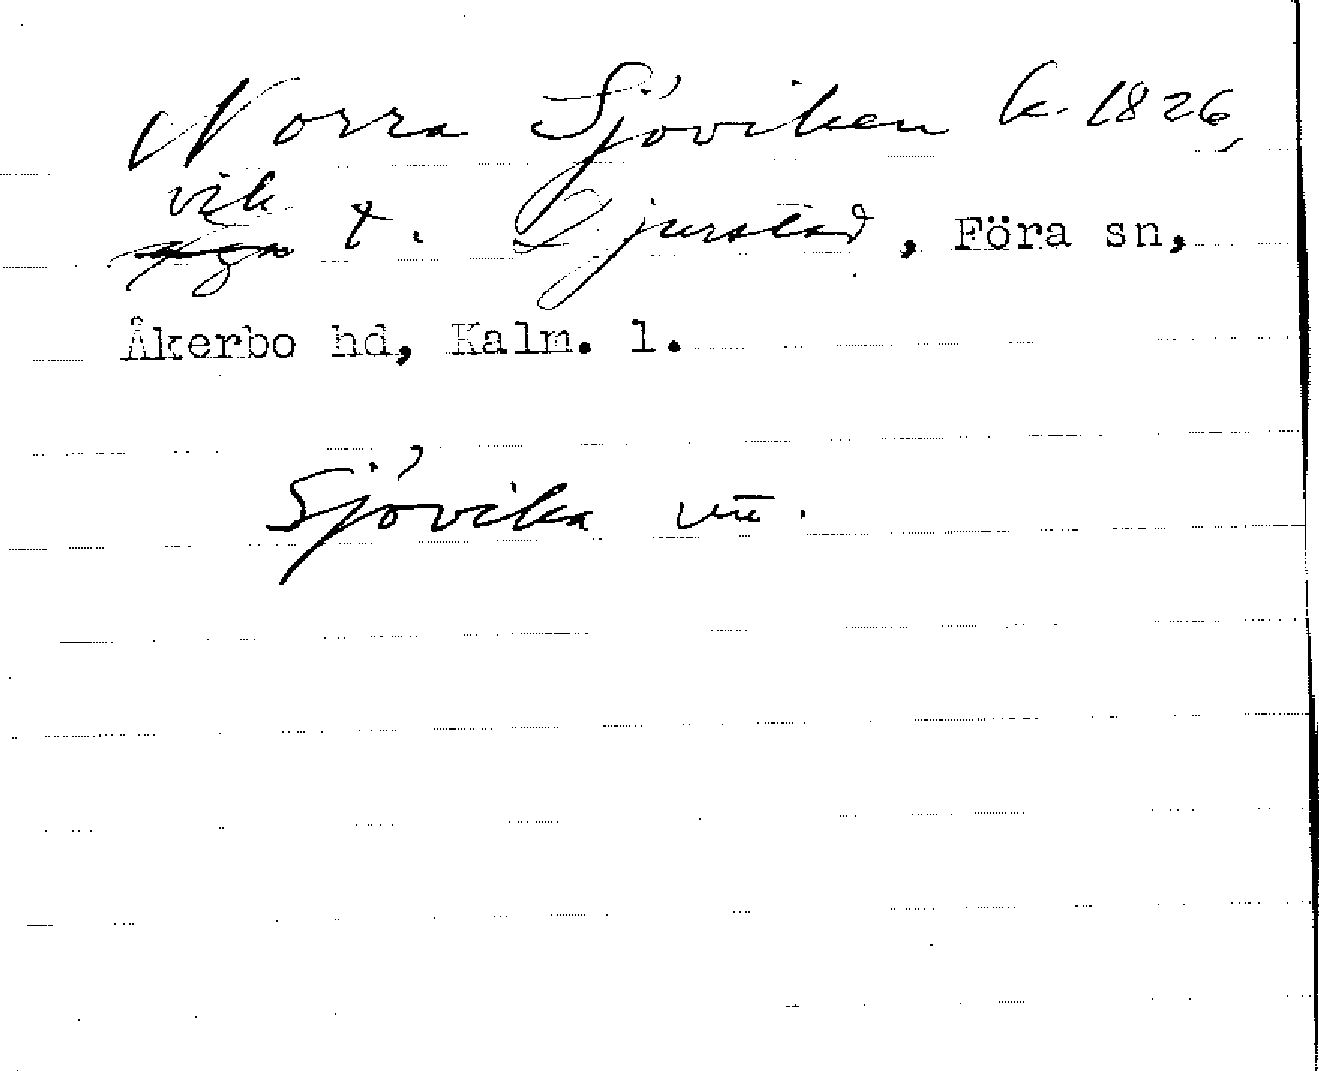 Norra Sjöviken k. 1826,
vik
äga t. Djurstad, Föra sn,
Åkerbo hd, Kalm. l.
Sjövika